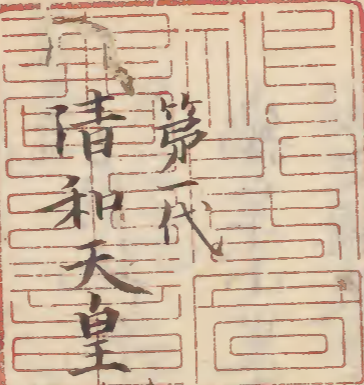 第一代
清和天皇